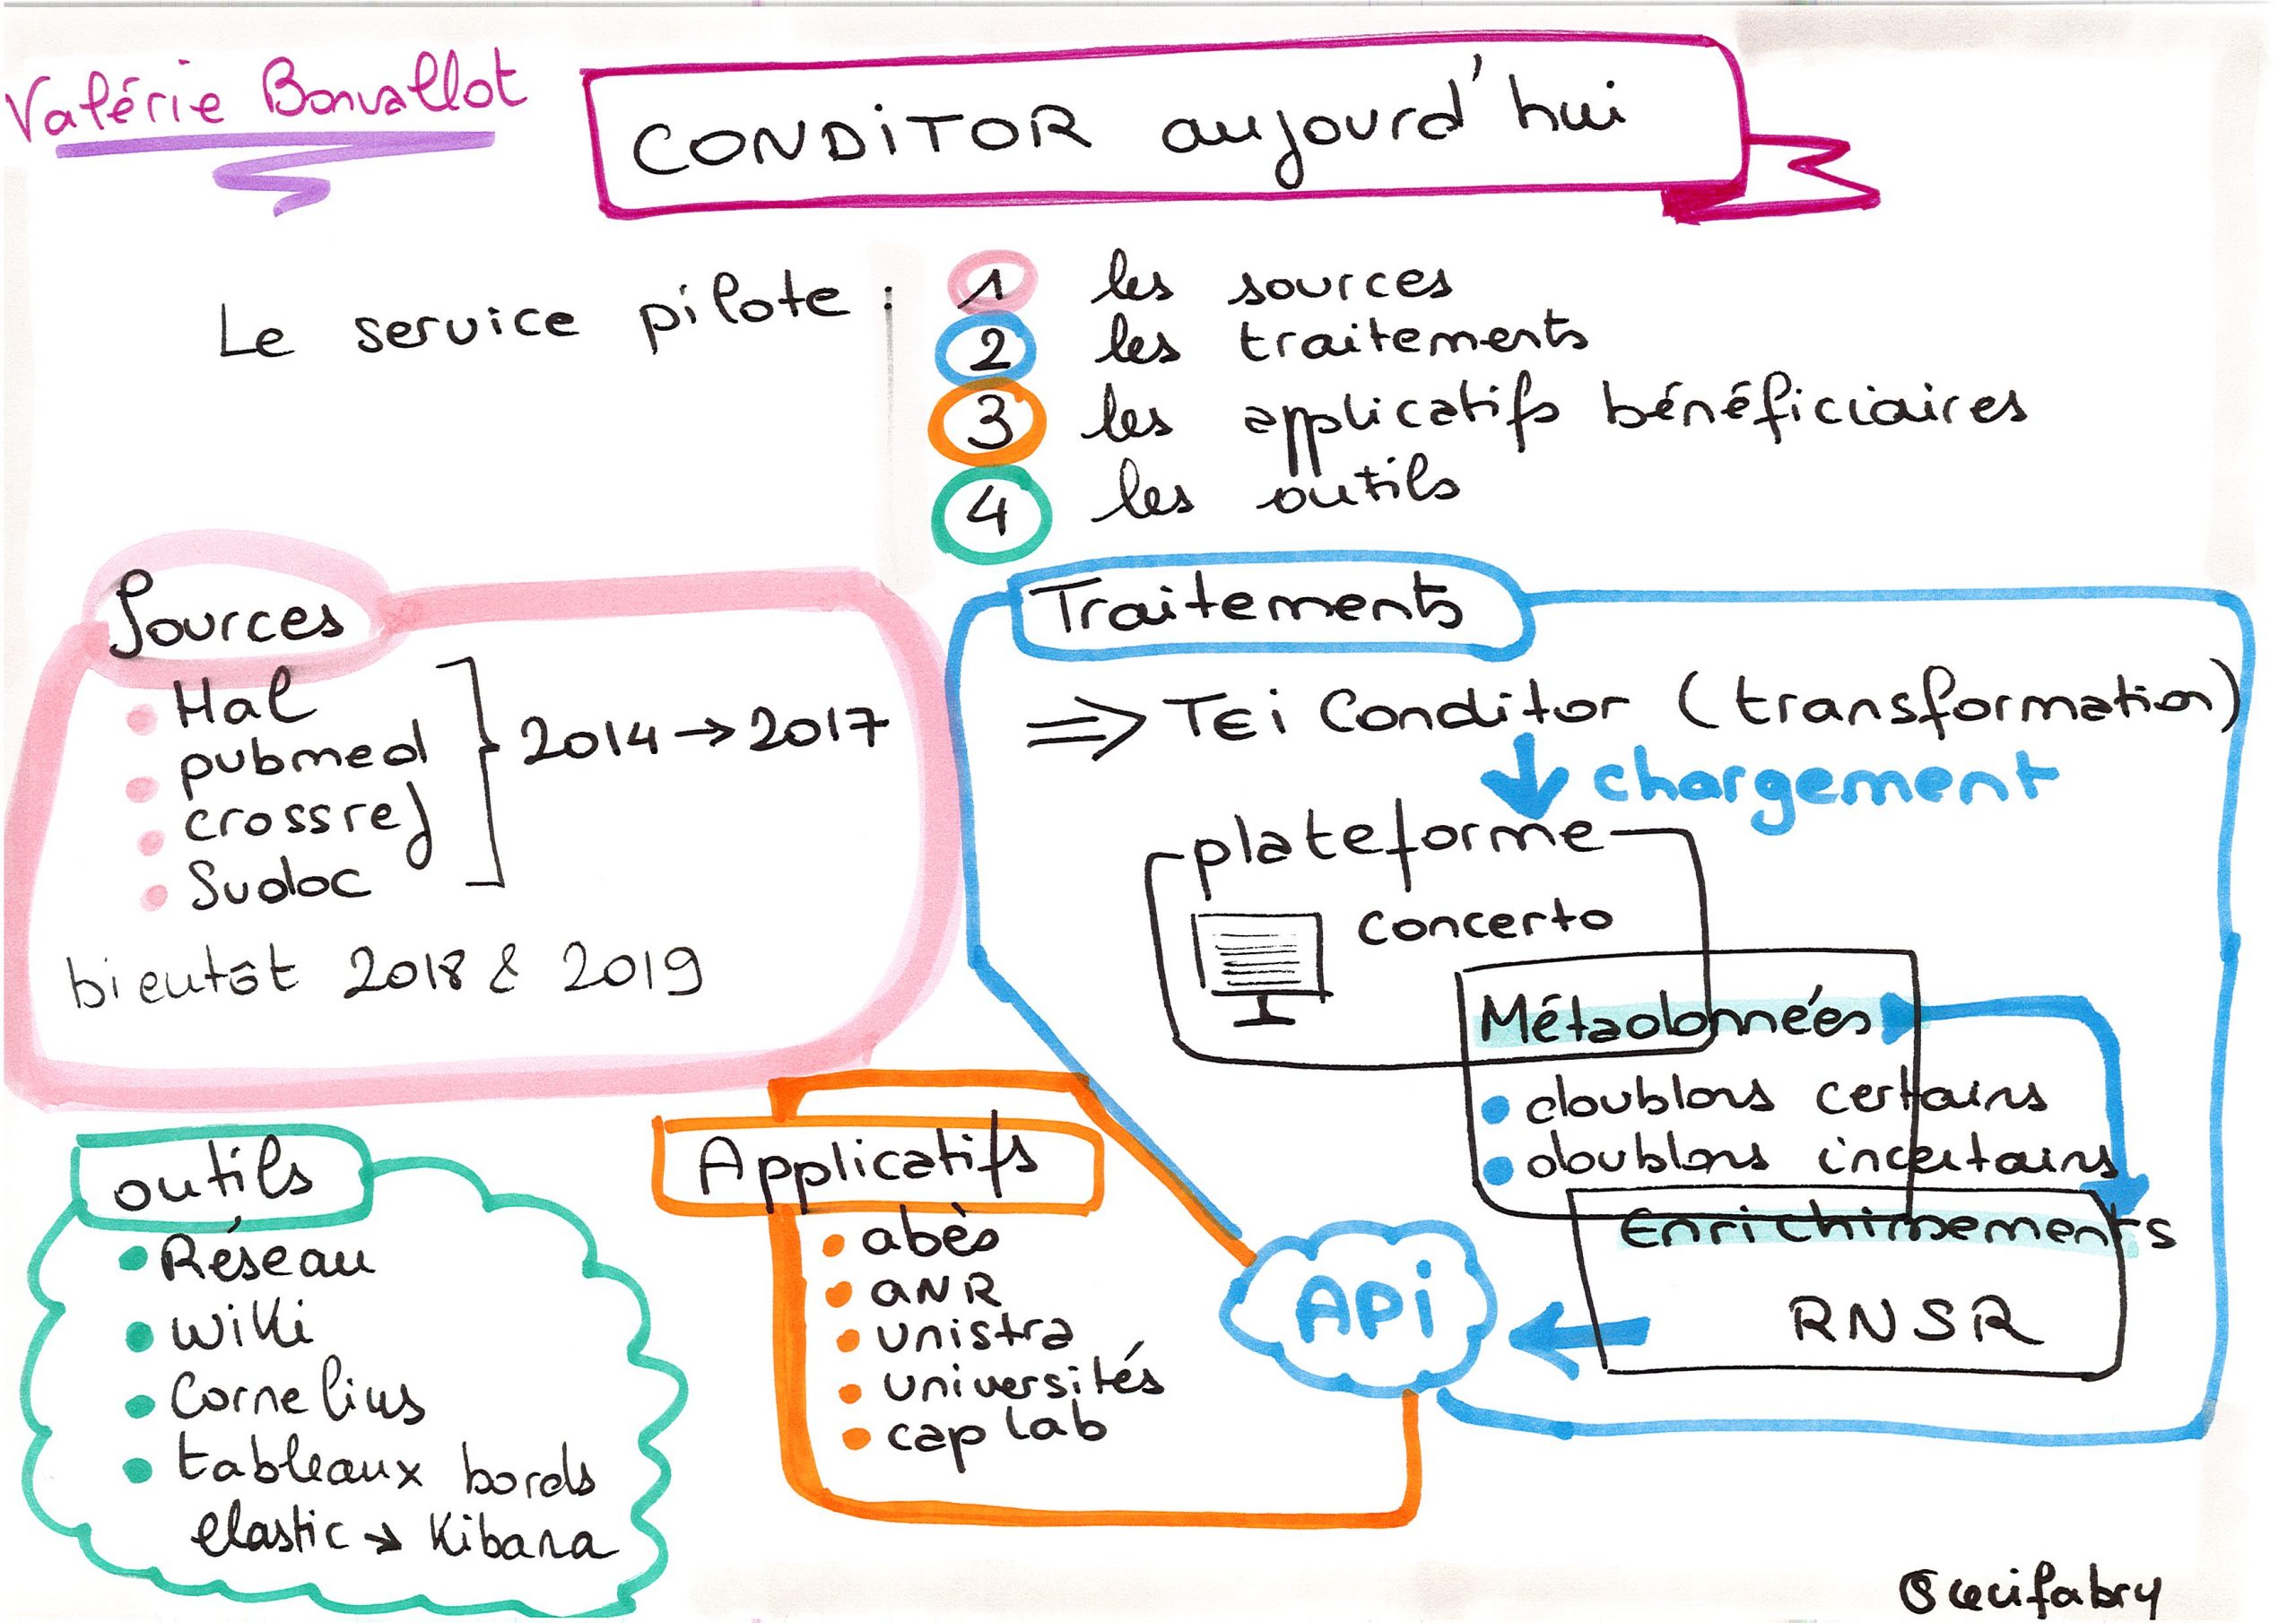 Valérie Bonvallot
CONDITOR aujourd'hui
Le service pilote :
1 les sources
2 les traitements
3 les applicatifs bénéficiaires
4 les outils
Sources
Hal
pubmed
crossref
Sudoc
2014 → 2017
bientôt 2018 & 2019
Traitements
⇒ TEi Conditor (transformation)
chargement
plateforme
concerto
Métadonnées
doublons certains
doublons incertains
Enrichissements
RNSR
API
Applicatifs
abès
aNR
unistra
universités
cap lab
outils
Réseau
wiki
Cornelius
tableaux bords
elastic → Kibana
@cecifabry